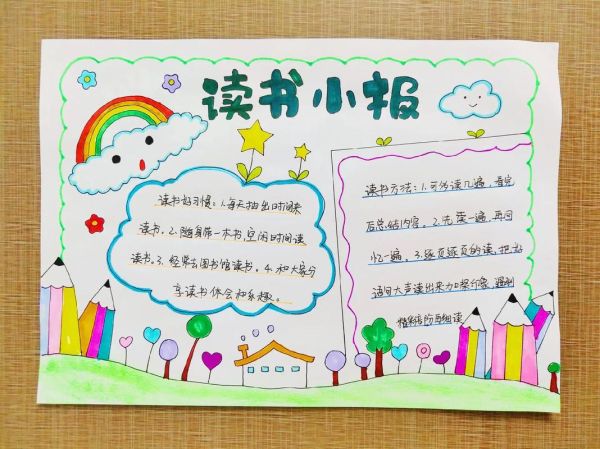 读书小报
读书好习惯:1.每天抽出时间来
读书。2.随身带一本书,空闲时间读
读书。3.经常去图书馆读书。4.和大家分
享读书体会和乐趣。
读书方法:1.可以读几遍,看完
后总结内容。2.先读一遍,再回
忆一遍。3.逐页逐页的读,把好
语句大声读出来加深印象,遇到
精彩的后细读